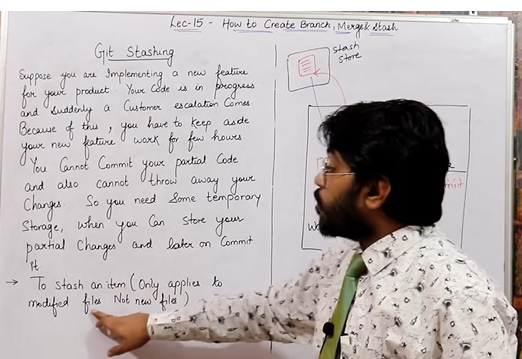 Lec-15 - How to Create Branch, Merge & Stash
Git Stashing
Suppose you are Implementing a new feature
for your product. Your Code is in progress
and suddenly a Customer escalation Comes
Because of this, you have to keep aside
your new feature work for few hours
You Cannot Commit your partial Code
and also cannot throw away your
Changes. So you need Some temporary
Storage, when you Can Store your
partial Changes and later on Commit
it
→ To stash an item (Only applies to
modified files Not new files)
stash
store